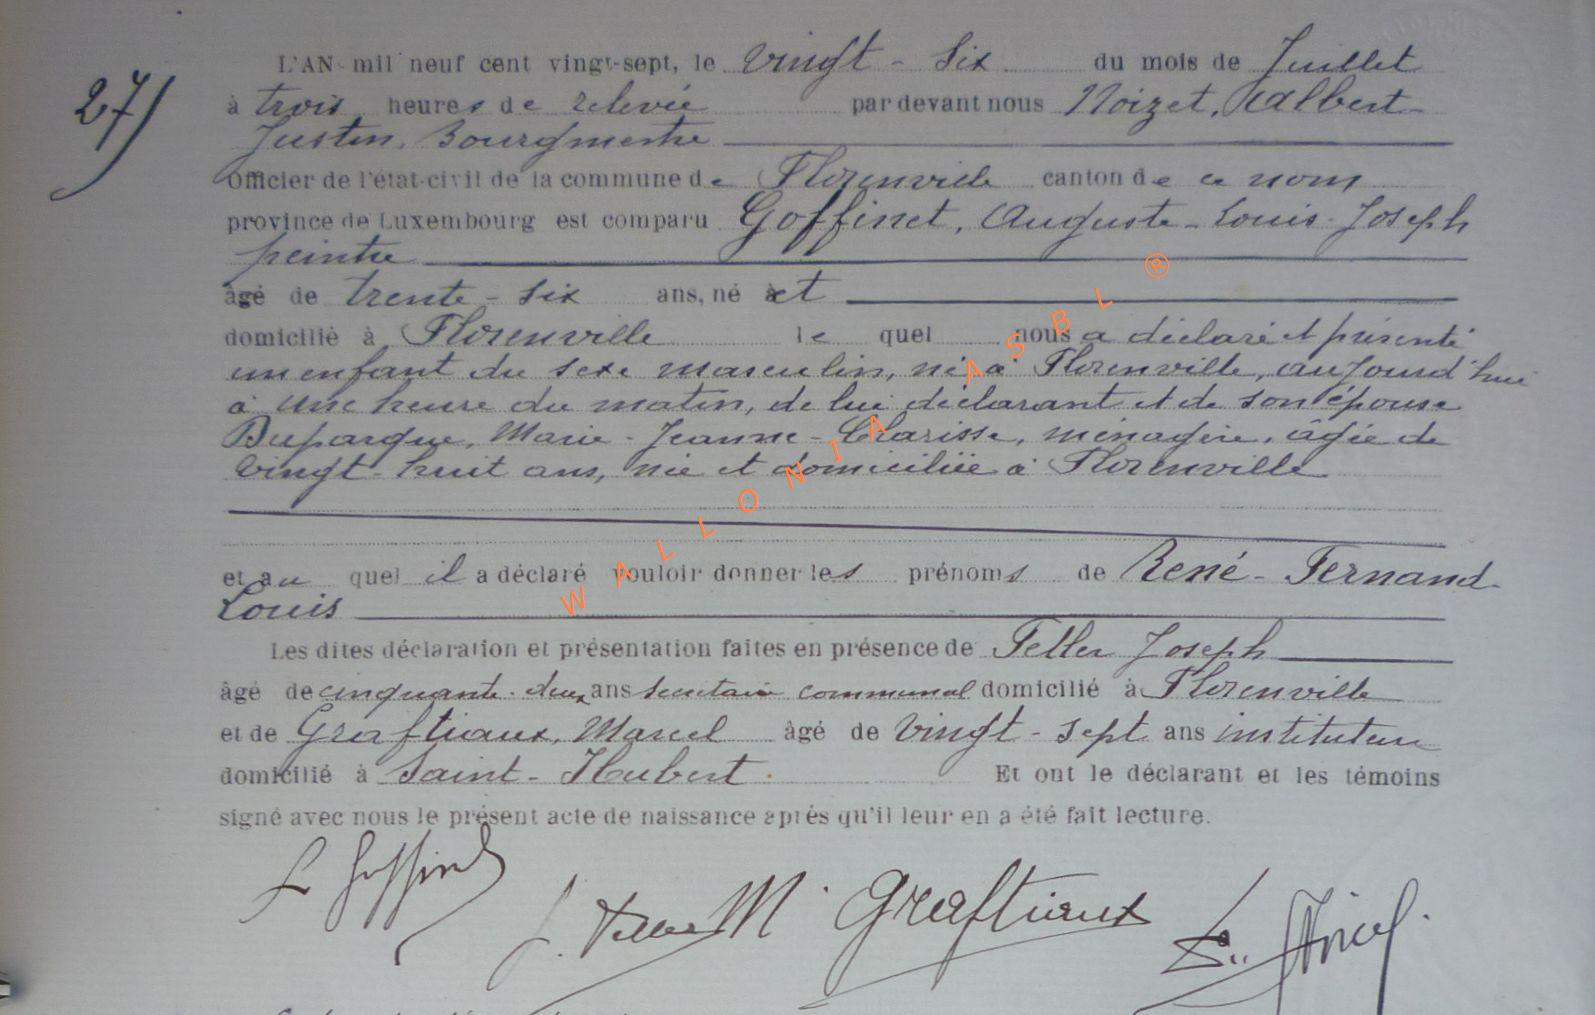 27)
L'AN mil neuf cent vingt-sept, le vingt-six du mois de Juillet
à trois heures de relevée par devant nous Noizet, Adalbert-
Justin, Bourgmestre
Officier de l'état-civil de la commune de Florenville canton de ce nom
province de Luxembourg est comparu Goffinet, Auguste-Louis-Joseph
peintre
âgé de trente-six ans, né et
domicilié à Florenville le quel nous a déclaré et présenté
un enfant du sexe masculin, né à Florenville, aujourd'hui
à une heure du matin, de lui déclarant et de son épouse
Duparque, Marie-Jeanne-Clarisse, ménagère, âgée de
vingt-huit ans, née et domiciliée à Florenville
et au quel il a déclaré vouloir donner les prénoms de René-Fernand-
Louis
Les dites déclaration et présentation faites en présence de Feller Joseph
âgé de cinquante-deux ans secrétaire communal domicilié à Florenville
et de Graftiaux, Marcel âgé de vingt-sept ans instituteur
domicilié à Saint-Hubert. Et ont le déclarant et les témoins
signé avec nous le présent acte de naissance après qu'il leur en a été fait lecture.
L Goffinet
J. Feller M. Graftiaux
WALLONIA ASBL ®